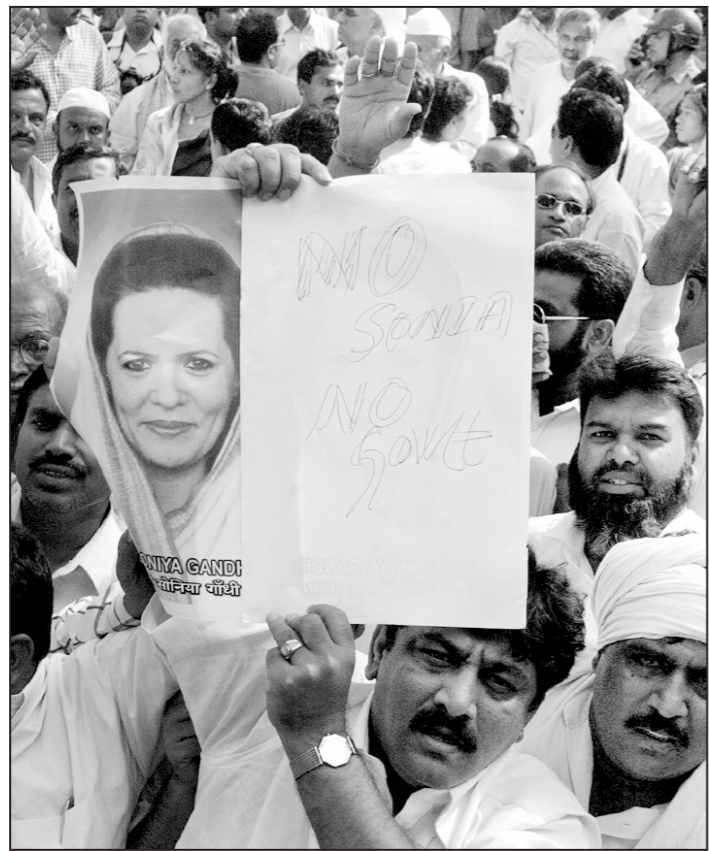 NO
SONIA
NO
Govt
ONIYA GANDH
सोनिया गाँधी